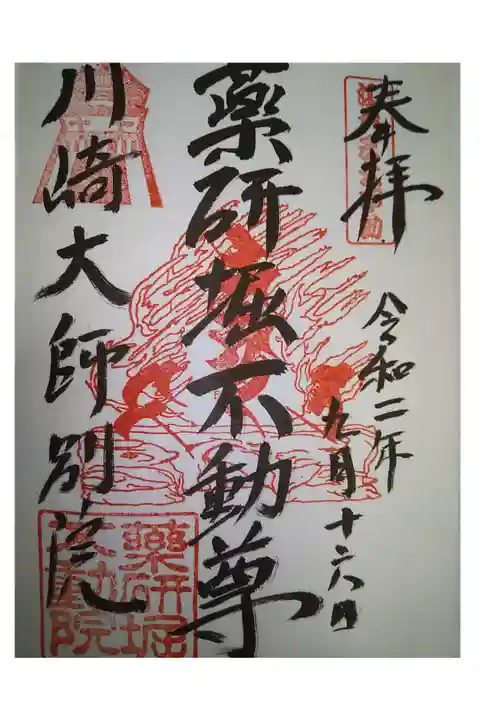 奉拝
令和二年
九月十六日
薬研堀不動尊
川崎大師別院
藥研堀
不動院